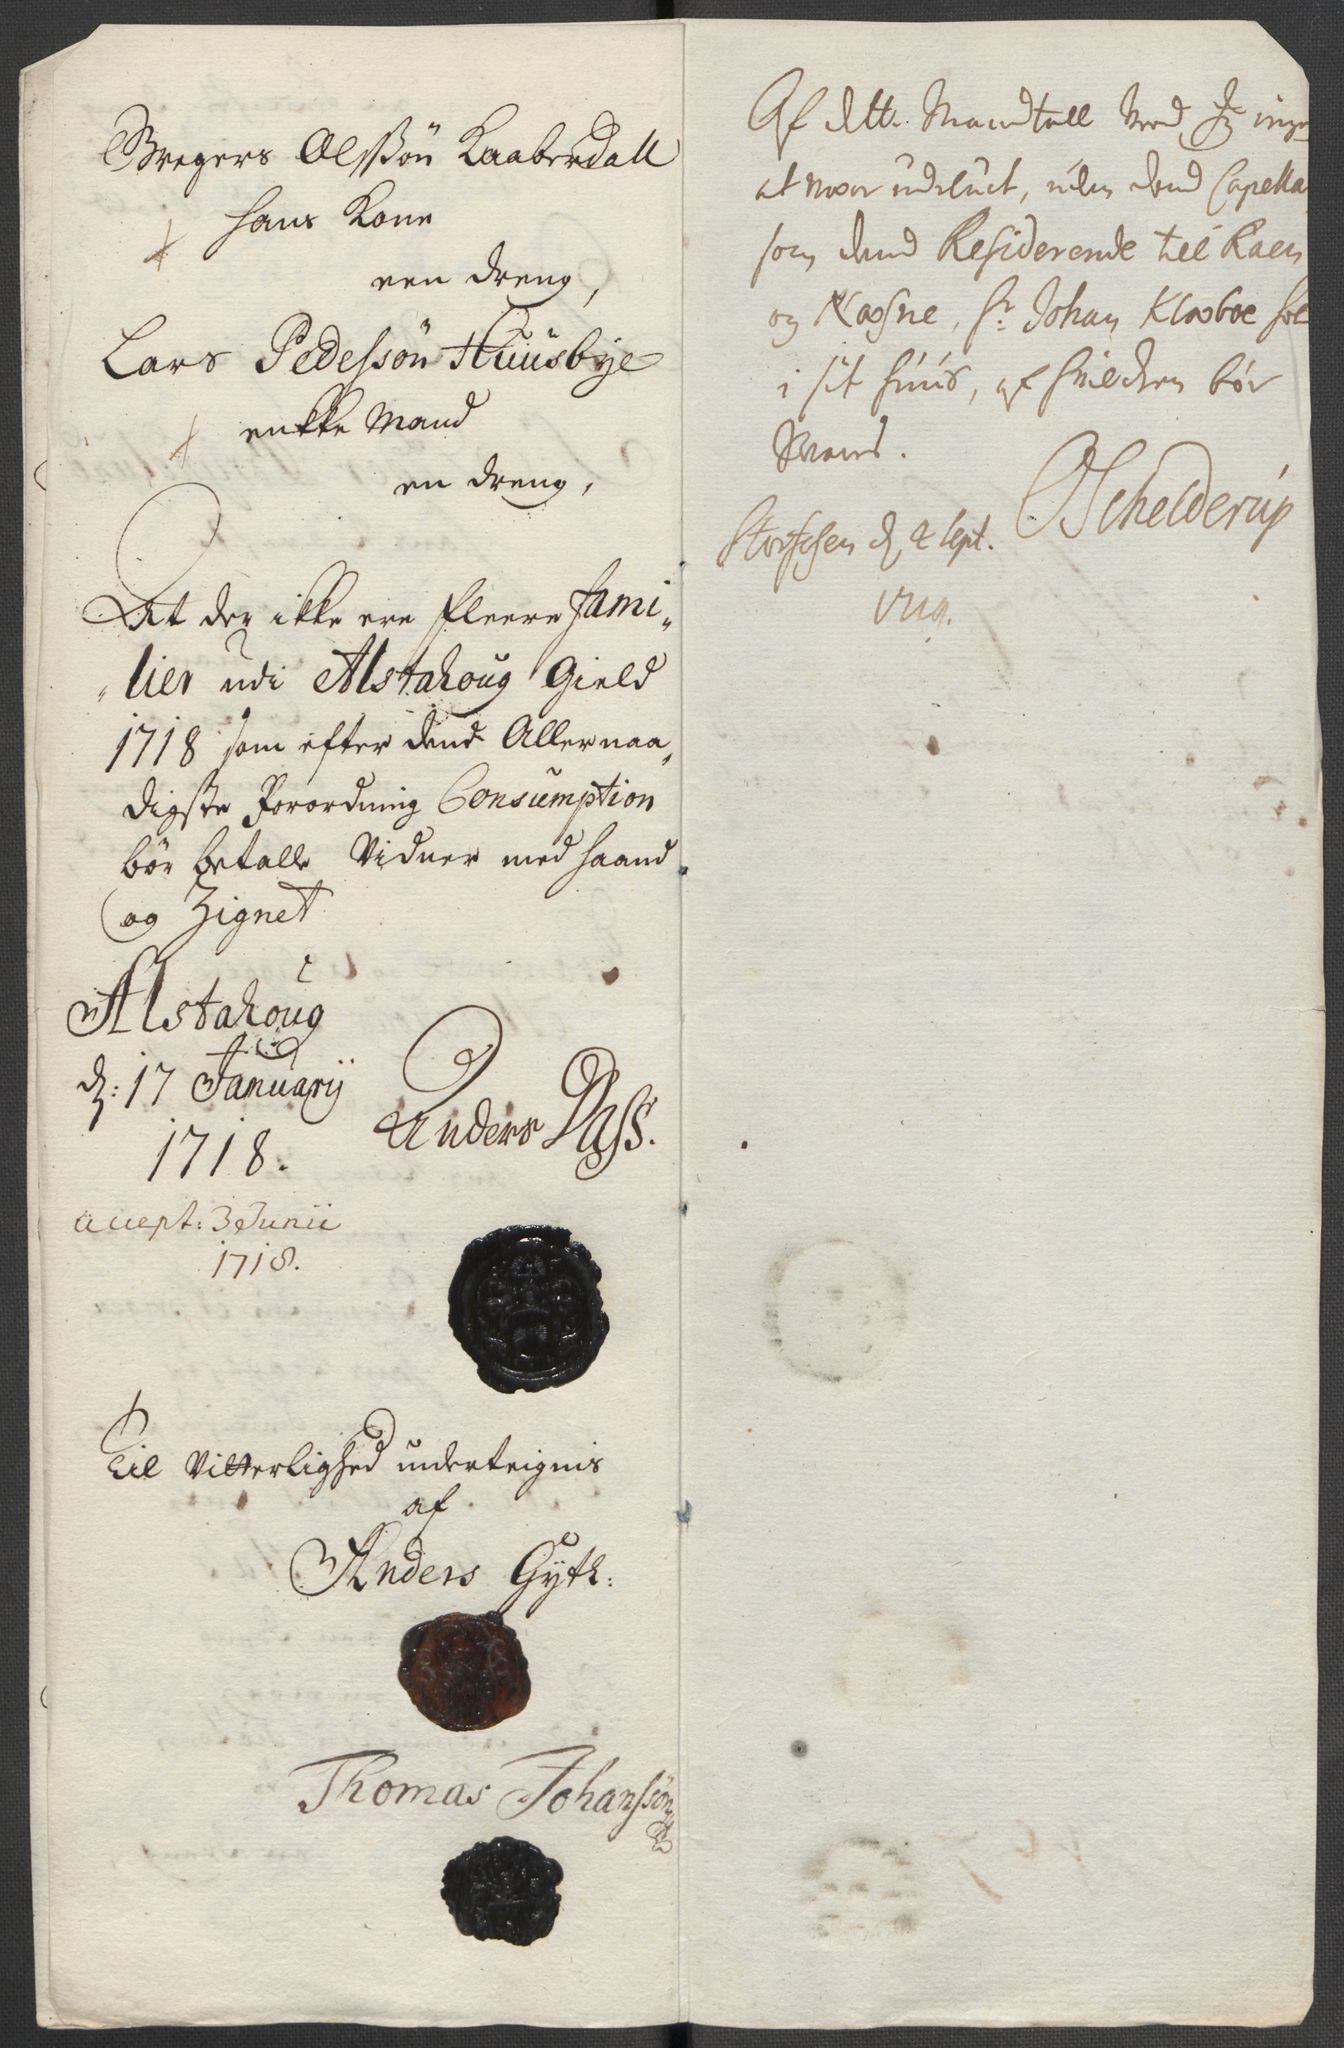 Bregers Olssøn Kaaberdall
hans Kone
een dreng,
Lars Pederssøn Huusbye
enkke Mand
en dreng,
At der ikke ere fleere fami„
„lier udi Alstahoug Gield
1718 som efter dend Allernaa„
digste Forordning Consumption
bør betalle Vidner med haand
og Zignet
Alstahoug
d: 17 Januarij
1718.
Anders Dass.
accept: 3 Junii
1718.
Til Vitterlighed underteignis
af
Anders Gyth:
Thomas Johanssøn
Af dette Mandtall Veed Jeg ingen
at vær udeluct, uden dend Capellan
som dend Residerende til Raen
og Næsne, Hr. Johan Klæboe
i sit huus, af hvilcken bør
Svares.
d 2 Sept.
1719.
Schelderup